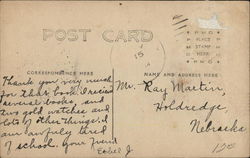 POST CARD
PLACE
STAMP
HERE
15
CORRESPONDENCE HERE
NAME AND ADDRESS HERE
Thank you very much
for that book. I received
several books, and
two gold watches and
lots of other things. I
am awfully tired
of school. your friend
Ethel J.
Mr. Ray Martin,
Holdredge,
Nebraska